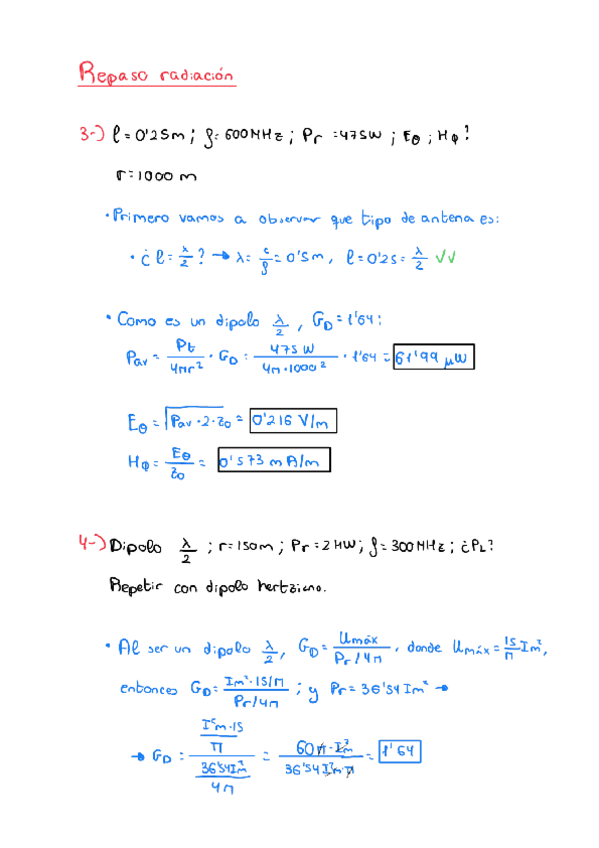 Repaso radiación
3-) l = 0'25m ; f = 600MHz ; Pr = 475W ; Eθ ; Hφ ?
r = 1000 m
• Primero vamos a observar que tipo de antena es:
• ¿ l = λ/2 ? → λ = c/f = 0'5m , l = 0'25 = λ/2 √√
• Como es un dipolo λ/2 , GD = 1'64 :
Pav = Pt/4πr² · GD = 475 W/4π·1000² · 1'64 = 61'99 μW
Eθ = √(Pav·2·z0) = 0'216 V/m
Hφ = Eθ/z0 = 0'573 mA/m
4-) Dipolo λ/2 ; r = 150m ; Pr = 2MW ; f = 300MHz ; ¿PL?
Repetir con dipolo hertziano.
• Al ser un dipolo λ/2 , GD = Umáx/Pr/4π , donde Umáx = 15/π Im²,
entonces GD = Im²·15/π/Pr/4π ; y Pr = 36'54 Im² →
→ GD = I²m·15/π/36'54Im²/4π = 60π·Im²/36'54 I²m·π = 1'64